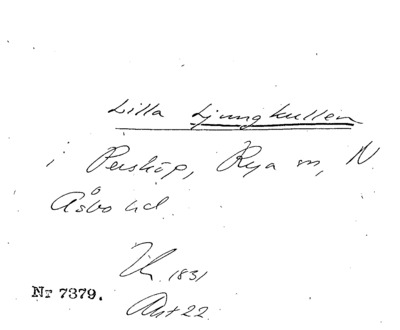 Lilla Ljungkullen
i Perstorp, Rya sn, N.
Åsbo hd.
Jh. 1831
Akt 22
Nr 7379.